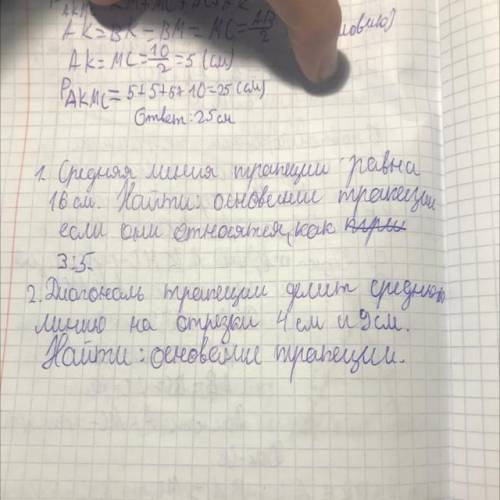 AK = BK = BM = MC = AB/2
AK = MC = 10/2 = 5 (см)
P AKMC = 5+5+5+10=25(см)
Ответ: 25 см
1. Средняя линия трапеции равна
16 см. Найти: основении трапеции
если они относятся, как
3:5.
2. Диагональ трапеции делит среднюю
линию на отрезки 4 см и 9 см.
Найти: основение трапеции.